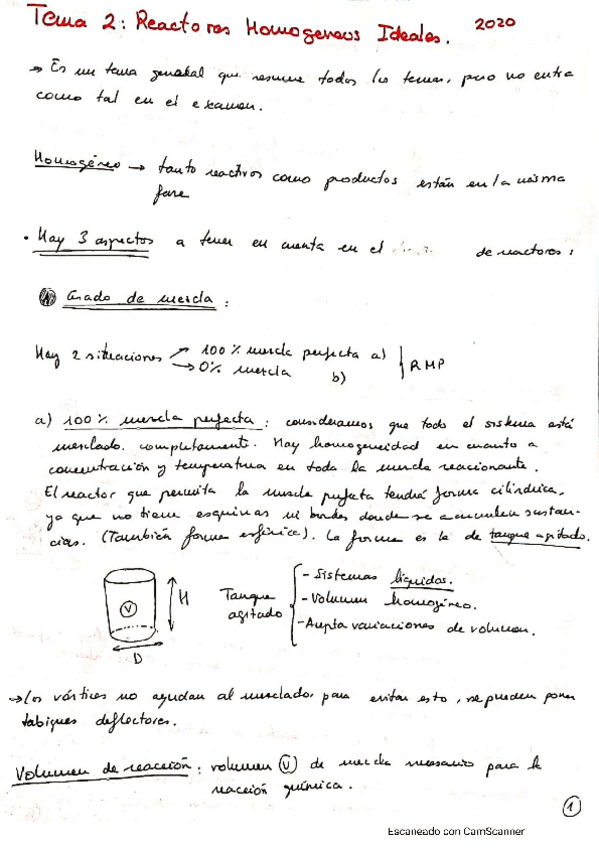 Tema 2: Reactores Homogéneos Ideales. 2020
→ Es un tema general que resume todos los temas, pero no entra
como tal en el examen.
Homogéneo → tanto reactivos como productos están en la misma
fase
· Hay 3 aspectos a tener en cuenta en el de reactores:
Ⓐ Grado de mezcla:
Hay 2 situaciones → 100% mezcla perfecta a)
→ 0% mezcla b)
RMP
a) 100% mezcla perfecta: consideramos que todo el sistema está
mezclado completamente. Hay homogeneidad en cuanto a
concentración y temperatura en toda la mezcla reaccionante.
El reactor que permita la mezcla perfecta tendrá forma cilíndrica,
ya que no tiene esquinas ni bordes donde se acumulen sustan-
cias. (También forma esférica). La forma es la de tanque agitado.
V
H
D
Tanque
agitado
- Sistemas líquidos.
- Volumen homogéneo.
- Acepta variaciones de volumen.
→ Los vórtices no ayudan al mezclador, para evitar esto, se pueden poner
tabiques deflectores.
Volumen de reacción: volumen Ⓥ de mezcla necesario para la
reacción química.
1
Escaneado con CamScanner